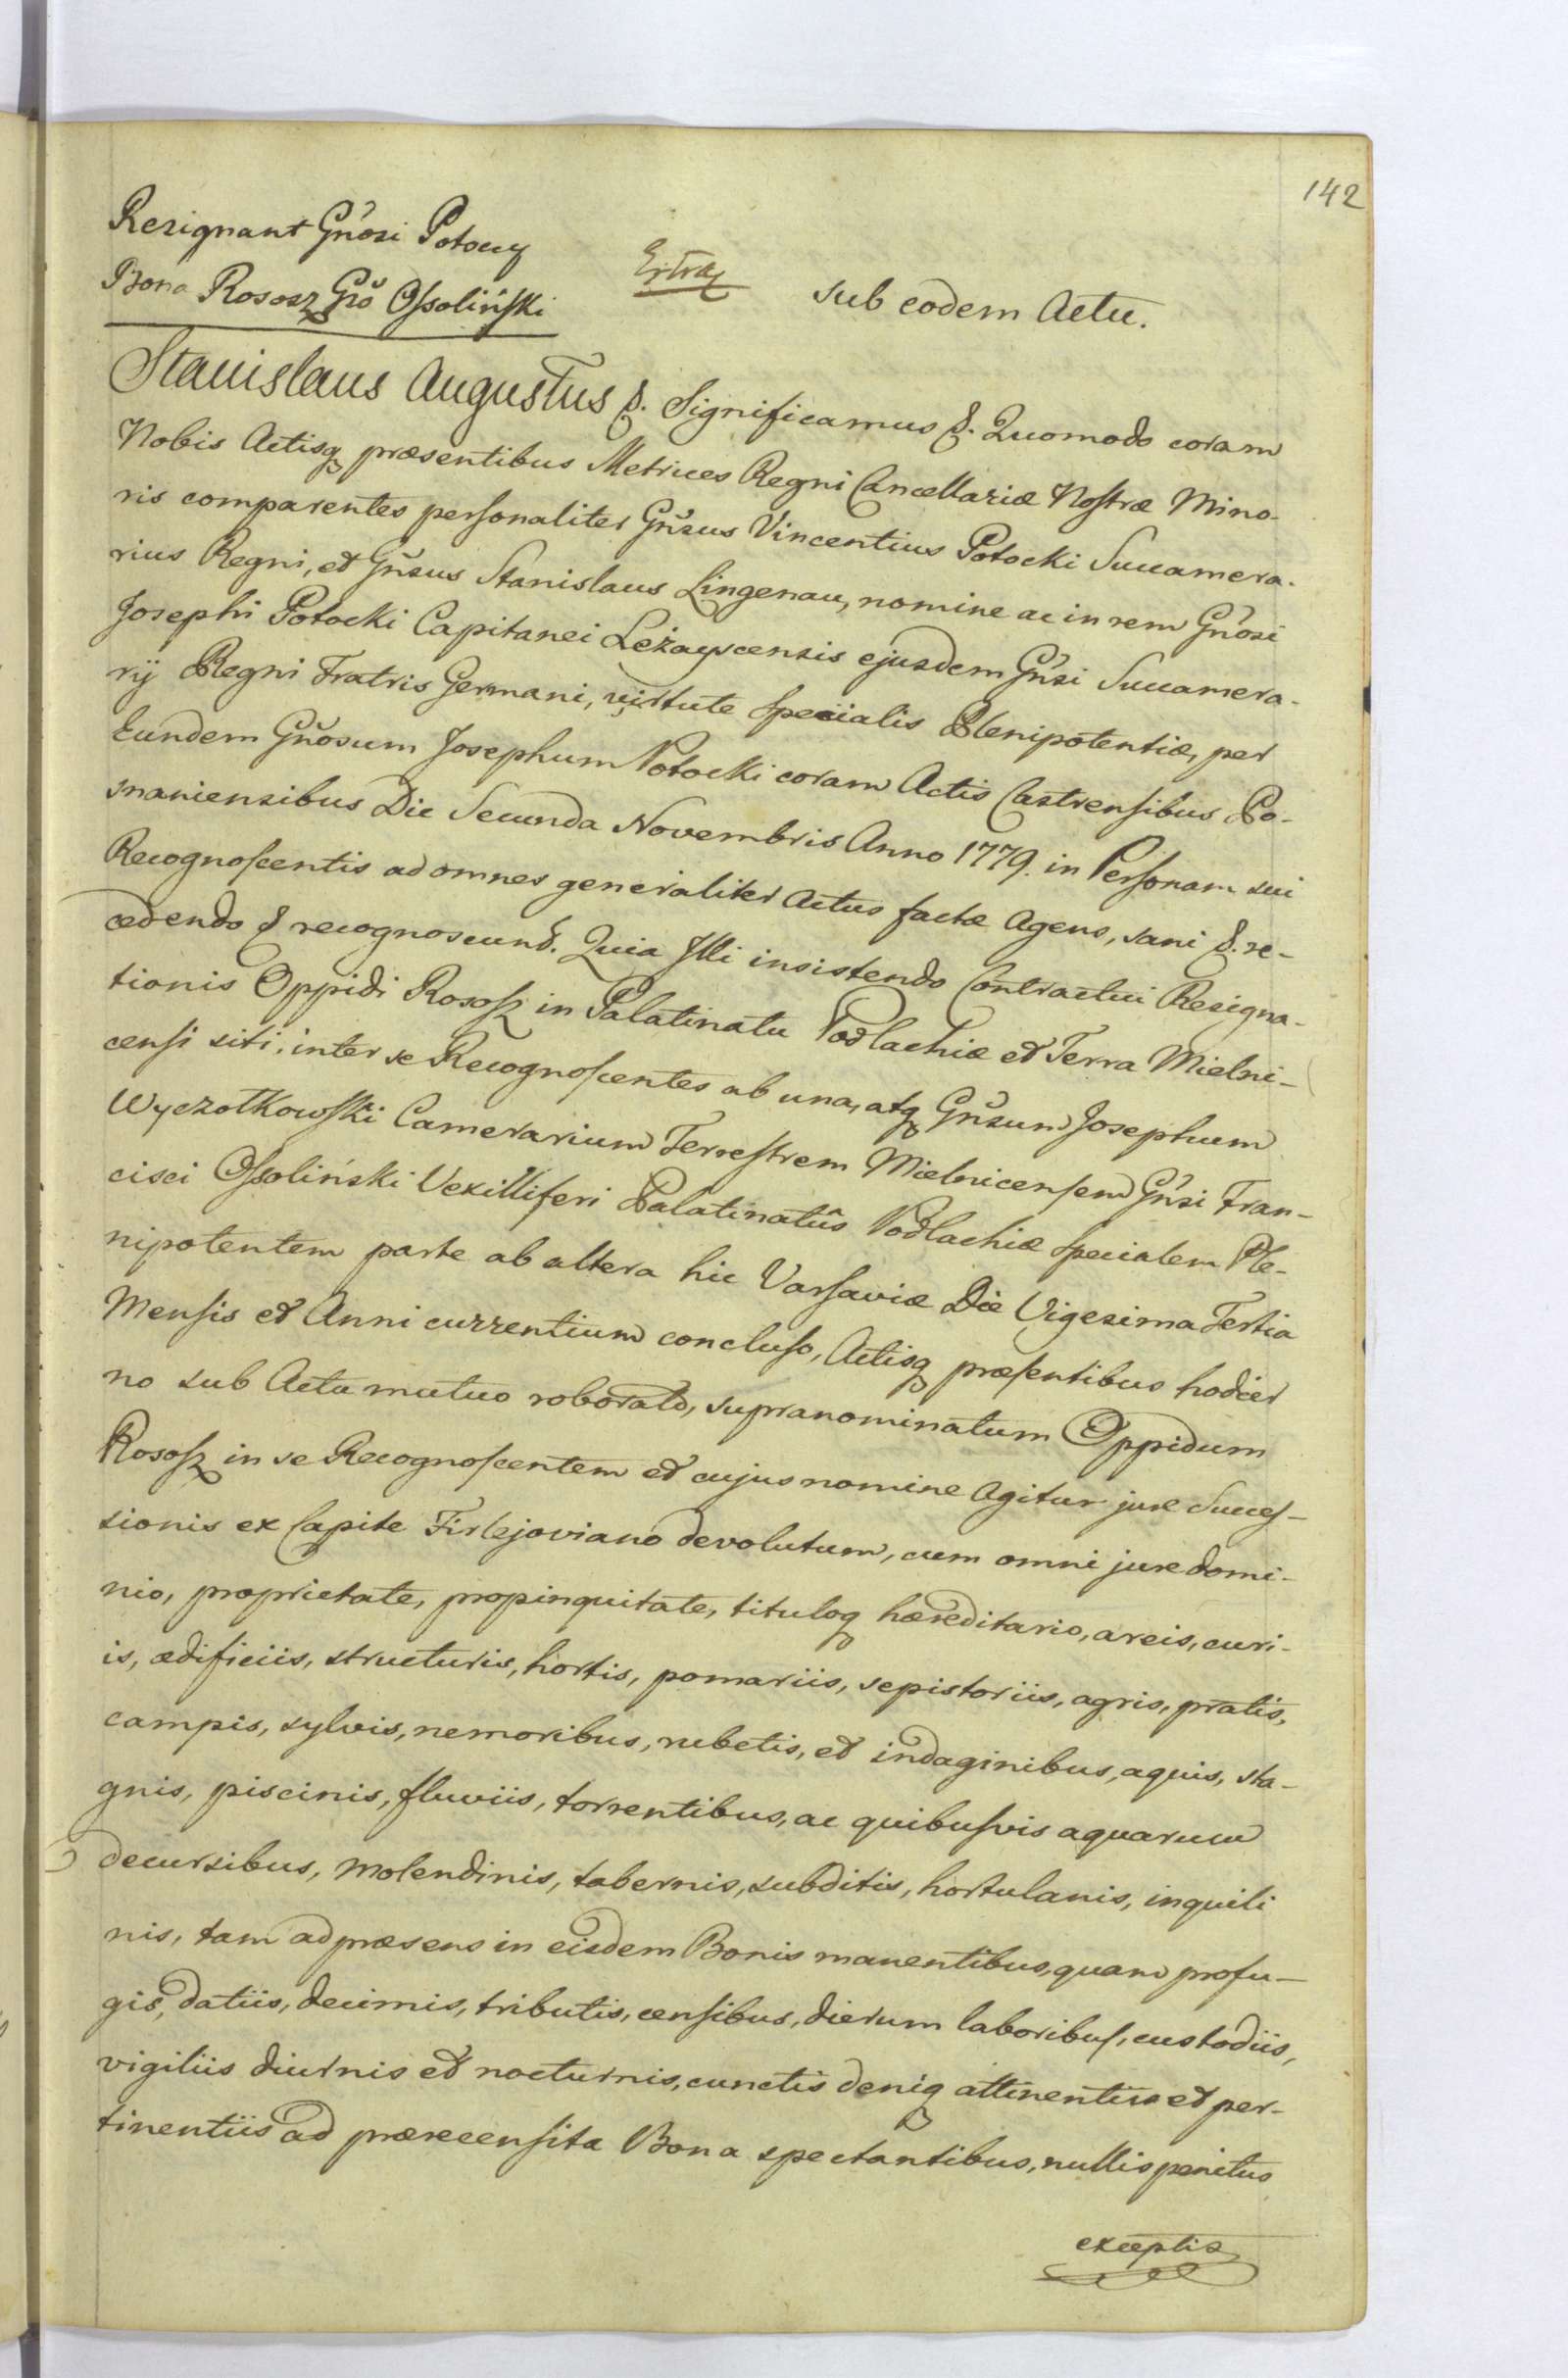 142
Resignant Gnosi Potoccy
Bona Rososz Gso Ossoliński
Extrax
sub eodem Actu.
Stanislaus Augustus &. Significamus &. Quomodo coram
Nobis Actisq præsentibus Metrices Regni Cancellariæ Nostræ Mino-
ris comparentes personaliter Gnsus Vincentius Potocki Succamera-
rius Regni, et Gnsus Stanislaus Lingenau, nomine ac in rem Gnosi
Josephi Potocki Capitanei Leżayscensis ejusdem Gnsi Succamera-
rij Regni Fratris Germani, virtute specialis Plenipotentiæ, per
Eundem Gnosum Josephum Potocki coram Actis Castrensibus Po-
snaniensibus Die Secunda Novembris Anno 1779. in Personam sui
Recognoscentis ad omnes generaliter Actus factæ Agens, sani &. re-
cedendo & recognoscund. Quia Illi insistendo Contractui Resigna-
tionis Oppidi Rososz in Palatinatu Podlachiæ et Terra Mielni-
censi siti, inter se Recognoscentes ab una, atq Gnsum Josephum
Wyczołkowski Camerarium Terrestrem Mielnicensem Gnsi Fran-
cisci Ossoliński Vexilliferi Palatinatûs Podlachiæ specialem Ple-
nipotentem parte ab altera hic Varsaviæ Die Vigesima Tertia
Mensis et Anni currentium concluso, Actisq præsentibus hodier
no sub Actu mutuo roborato, supranominatum Oppidum
Rososz in se Recognoscentem et cujus nomine Agitur jure Succes-
sionis ex Capite Firlejoviano devolutum, cum omni jure domi-
nio, proprietate, propinquitate, tituloq hæreditario, areis, curi-
is, ædificiis, structuris, hortis, pomariis, sepistoriis, agris, pratis,
campis, sylvis, nemoribus, rubetis, et indaginibus, aquis, sta-
gnis, piscinis, fluviis, torrentibus, ac quibusvis aquarum
decursibus, molendinis, tabernis, subditis, hortulanis, inquili
nis, tam ad præsens in eisdem Bonis manentibus, quam profu-
gis, datiis, decimis, tributis, censibus, dierum laboribus, custodiis,
vigiliis diurnis et nocturnis, cunctis deniq attinentiis et per-
tinentiis ad præcensita Bona spectantibus, nullis penitus
exceptis